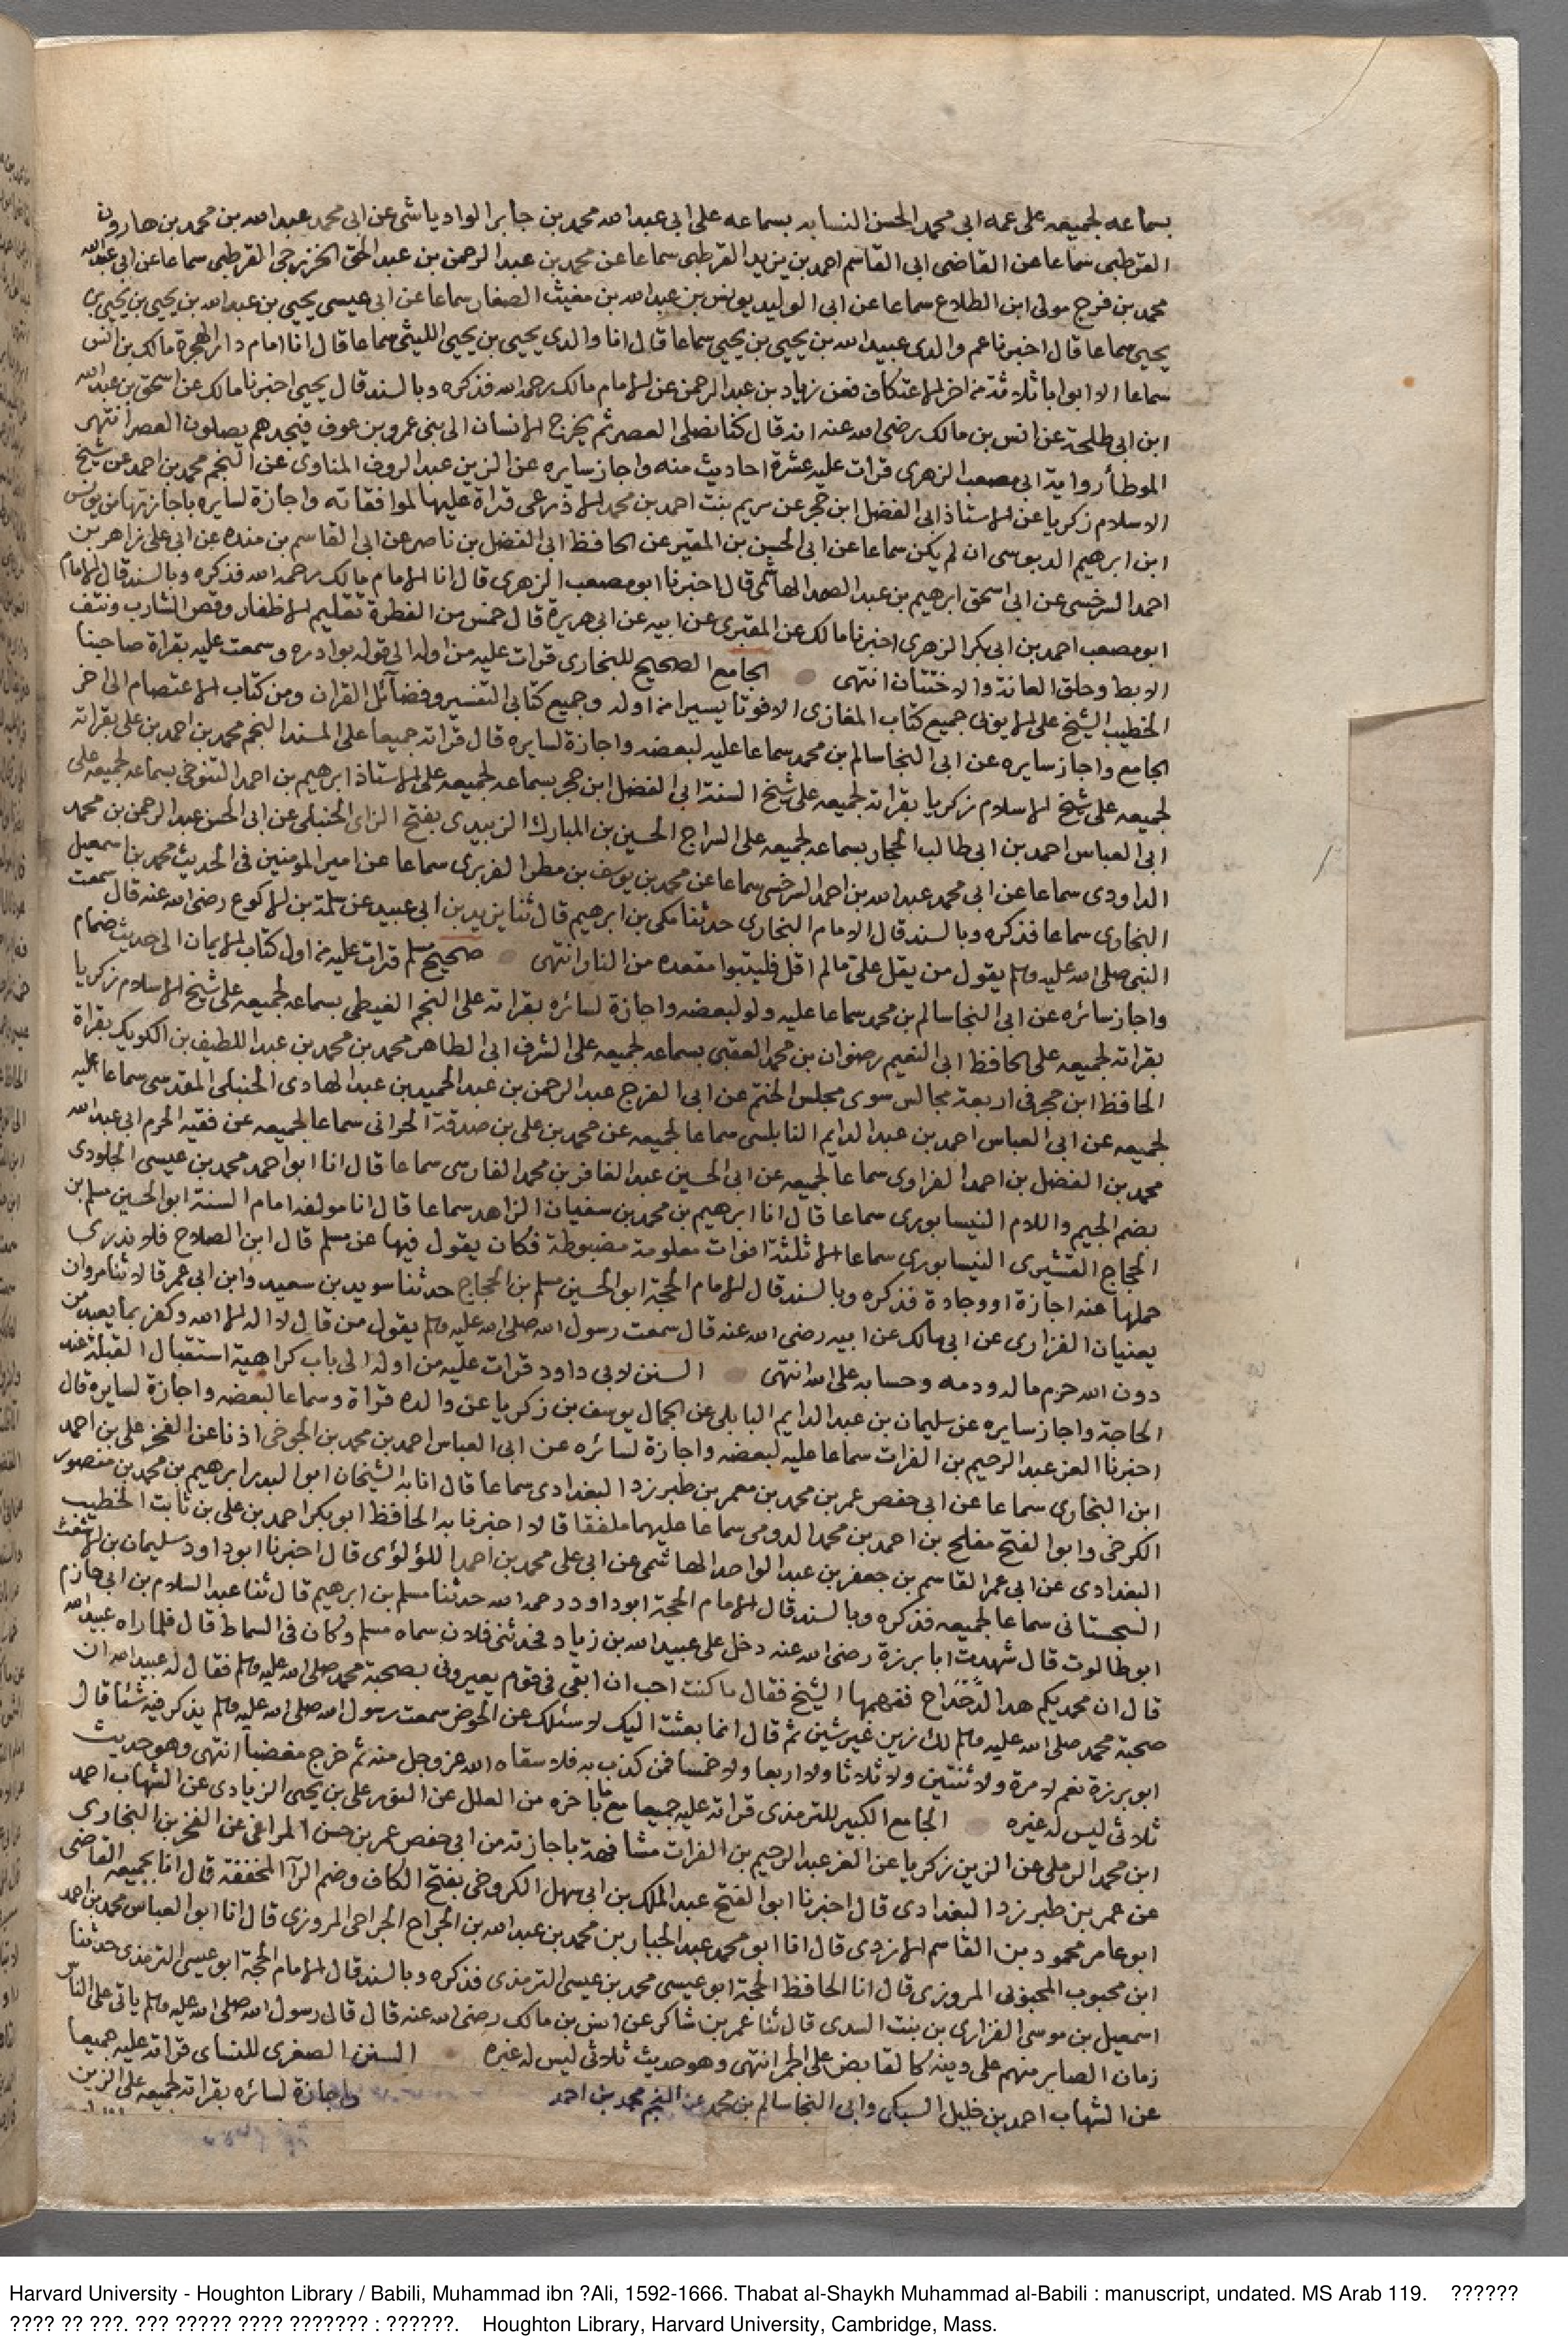 بسماعه لجميعه على عمه ابى محمد الحسن النسابه بسماعه على ابى عبد الله محمد بن جابر الوادياشى عن ابى محمد عبد الله بن محمد بن هارون
القرطبى سماعا عن القاضى ابى القاسم احمد بن يزيد القرطبى سماعا عن محمد بن عبد الرحمن بن عبد الحق الخزرجى القرطبى سماعا عن ابى عبد الله
محمد بن فرج مولى ابن الطلاع سماعا عن ابى الوليد يونس بن عبد الله بن مغيث الصفار سماعا عن ابى عيسى يحيى بن عبد الله بن يحيى بن يحيى بن
يحيى سماعا قال اخبرنا عم والدى عبيد الله بن يحيى بن يحيى سماعا قال انا والدى يحيى بن يحيى الليثى سماعا قال انا امام دار الهجرة مالك بن انس
سماعا الا ابوابا ثلاثة من اخر الاعتكاف فعن زياد بن عبد الرحمن عن الامام مالك رحمه الله فذكره وبالسند قال يحيى اخبرنا مالك عن اسحق بن عبد الله
ابن ابى طلحة عن انس بن مالك رضى الله عنه انه قال كنا نصلى العصر ثم يخرج الانسان الى بنى عمرو بن عوف فيجدهم يصلون العصر انتهى
الموطأ رواية ابى مصعب الزهرى قرات عليه عشرة احاديث منه واجاز سايره عن الزين عبد الروف المناوى عن النجم محمد بن احمد عن شيخ
الاسلام زكريا عن الاستاذ ابى الفضل ابن حجر عن مريم بنت احمد بن محمد الاذرعى قراة عليها لموافقاته واجازة لسايره باجازتها من يونس
ابن ابرهيم الدبوسى ان لم يكن سماعا عن ابى الحسن بن المقير عن الحافظ ابى الفضل بن ناصر عن ابى القاسم بن منده عن ابى على زاهر بن
احمد السرخسى عن ابى اسحق ابرهيم بن عبد الصمد الهاشمى قال اخبرنا ابو مصعب الزهرى قال انا الامام مالك رحمه الله فذكره وبالسند قال الامام
ابو مصعب احمد بن ابى بكر الزهرى اخبرنا مالك عن المقبرى عن ابيه عن ابى هريرة قال خمس من الفطرة تقليم الاظفار وقص الشارب ونتف
الابط وحلق العانة والاختتان انتهى الجامع الصحيح للبخارى قرات عليه من اوله الى قوله بوادره وسمعت عليه بقراة صاحبنا
الخطيب الشيخ على الايوبى جميع كتاب المغازى الا فوتا يسيرا من اوله وجميع كتابى التفسير وفضائل القران ومن كتاب الاعتصام الى اخر
الجامع واجاز سايره عن ابى النجا سالم بن محمد سماعا عليه لبعضه واجازة لسايره قال قراته جميعا على المسند النجم محمد بن احمد بن على بقراته
لجميعه على شيخ الاسلام زكريا بقراته لجميعه على شيخ السنة ابى الفضل ابن حجر بسماعه لجميعه على الاستاذ ابرهيم بن احمد التنوخى بسماعه لجميعه على
ابى العباس احمد بن ابى طالب الحجار بسماعه لجميعه على السراج الحسين بن المبارك الزبيدى بفتح الزاى الحنبلى عن ابى الحسن عبد الرحمن بن محمد
الداودى سماعا عن ابى محمد عبد الله بن احمد السرخسى سماعا عن محمد بن يوسف بن مطر الفربرى سماعا عن امير المومنين فى الحديث محمد بن اسمعيل
البخارى سماعا فذكره وبالسند قال الامام البخارى حدثنا مكى بن ابرهيم قال ثنا يزيد بن ابى عبيد عن سلمة بن الاكوع رضى الله عنه قال سمعت
النبى صلى الله عليه وسلم يقول من يقل على مالم اقل فليتبوا مقعده من النار انتهى صحيح مسلم قرات عليه من اول كتاب الايمان الى حديث ضمام
واجاز سائره عن ابى النجا سالم بن محمد سماعا عليه ولو لبعضه واجازة لسائره بقراته على النجم الغيطى بسماعه لجميعه على شيخ الاسلام زكريا
بقراته لجميعه على الحافظ ابى النعيم رضوان بن محمد العقبى بسماعه لجميعه على الشرف ابى الطاهر محمد بن محمد بن عبد اللطيف بن الكويك بقراة
الحافظ ابن حجر فى اربعة مجالس سوى مجلس الختم عن ابى الفرج عبد الرحمن بن عبد الحميد بن عبد الهادى الحنبلى المقدسى سماعا عليه
لجميعه عن ابى العباس احمد بن عبد الدايم النابلسى سماعا لجميعه عن محمد بن على بن صدقة الحرانى سماعا لجميعه عن فقيه الحرم ابى عبد الله
محمد بن الفضل بن احمد الفراوى سماعا لجميعه عن ابى الحسين عبد الغافر بن محمد الفارسى سماعا قال انا ابو احمد محمد بن عيسى الجلودى
بضم الجيم واللام النيسابورى سماعا قال انا ابرهيم بن محمد بن سفيان الزاهد سماعا قال انا مولفه امام السنة ابو الحسين مسلم بن
الحجاج القشيرى النيسابورى سماعا الا ثلثة افوات معلومة مضبوطة فكان يقول فيها عن مسلم قال ابن الصلاح فلا ندرى
حملها عنه اجازة او وجادة فذكره وبالسند قال الامام الحجة ابو الحسين مسلم بن الحجاج حدثنا سويد بن سعيد وابن ابى عمر قالا ثنا مروان
يعنيان الفزارى عن ابى مالك عن ابيه رضى الله عنه قال سمعت رسول الله صلى الله عليه وسلم يقول من قال لا اله الا الله وكفر بما يعبد من
دون الله حرم ماله ودمه وحسابه على الله انتهى السنن لابى داود قرات عليه من اوله الى باب كراهية استقبال القبلة عند
الحاجة واجاز سايره عن سليمان بن عبد الدايم البابلى عن الجمال يوسف بن زكريا عن والده قراة وسماعا لبعضه واجازة لسايره قال
اخبرنا العز عبد الرحيم بن الفرات سماعا عليه لبعضه واجازة لسائره عن ابى العباس احمد بن محمد بن الجوخى اذنا عن الفخر على بن احمد
ابن البخارى سماعا عن ابى حفص عمر بن محمد بن معمر بن طبرزد البغدادى سماعا قال انا به الشيخان ابو البدر ابرهيم بن محمد بن منصور
الكرخى وابو الفتح مفلح بن احمد بن محمد الدومى سماعا عليهما ملفقا قالا اخبرنا به الحافظ ابو بكر احمد بن على بن ثابت الخطيب
البغدادى عن ابى عمر القاسم بن جعفر بن عبد الواحد الهاشمى عن ابى على محمد بن احمد اللؤلؤى قال اخبرنا ابو داود سليمان بن الاشعث
السجستانى سماعا لجميعه فذكره وبالسند قال الامام الحجة ابو داود رحمه الله حدثنا مسلم بن ابرهيم قال ثنا عبد السلام بن ابى حازم
ابو طالوت قال شهدت ابا برزة رضى الله عنه دخل على عبيد الله بن زياد فحدثنى فلان سماه مسلم وكان فى السماط قال فلما راه عبيد الله
قال ان محمديكم هدا الدحداح ففهمها الشيخ فقال ما كنت احب ان ابقى فى قوم يعيرونى بصحبة محمد صلى الله عليه وسلم فقال له عبيد الله ان
صحبة محمد صلى الله عليه وسلم لك زين غير شين ثم قال انما بعثت اليك لاسئلك عن الحوض سمعت رسول الله صلى الله عليه وسلم يذكر فيه شئا قال
ابو برزة نعم لا مرة ولا ثنتين ولا ثلاثا ولا اربعا ولا خمسا فمن كذب به فلا سقاه الله عز وجل منه ثم خرج مغضبا انتهى وهو حديث
ثلاثى ليس له غيره الجامع الكبير للترمذى قراته عليه جميعا مع ما باخره من العلل عن النور على بن يحيى الزيادى عن الشهاب احمد
ابن محمد الرملى عن الزين زكريا عن العز عبد الرحيم بن الفرات مشافهة باجازته من ابى حفص عمر بن حسن المراغى عن الفخر بن البخارى
عن عمر بن طبرزد البغدادى قال اخبرنا ابو الفتح عبد الملك بن ابى سهل الكروخى بفتح الكاف وضم الرآ المخففة قال انا بجميعه القاضى
ابو عامر محمود بن القاسم الازدى قال انا ابو محمد عبد الجبار بن محمد بن عبد الله بن الجراح الجراحى المروزى قال انا ابو العباس محمد بن احمد
ابن محبوب المحبوبى المروزى قال انا الحافظ الحجة ابو عيسى محمد بن عيسى الترمذى فذكره وبالسند قال الامام الحجة ابو عيسى الترمذى حدثنا
اسمعيل بن موسى الفزارى بن بنت السدى قال ثنا عمر بن شاكر عن انس بن مالك رضى الله عنه قال قال رسول الله صلى الله عليه وسلم ياتى على الناس
زمان الصابر منهم على دينه كالقابض على الجمر انتهى وهو حديث ثلاثى ليس له غيره السنن الصغرى للنساى قراته عليه جميعا
عن الشهاب احمد بن خليل السبكى وابى النجا سالم بن محمد عن النجم محمد بن احمد واجازة لسائره بقراته لجميعه على الزين
Harvard University - Houghton Library / Babili, Muhammad ibn ?Ali, 1592-1666. Thabat al-Shaykh Muhammad al-Babili : manuscript, undated. MS Arab 119. ??????
???? ?? ???. ??? ????? ???? ??????? : ??????. Houghton Library, Harvard University, Cambridge, Mass.